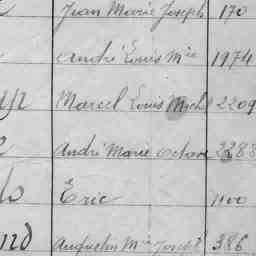 Jean Marie Joseph 170
André Louis Mie 1974
Marcel Louis Michel 2209
André Marie Octave 2288
Eric
Augustin Mie Joseph 386